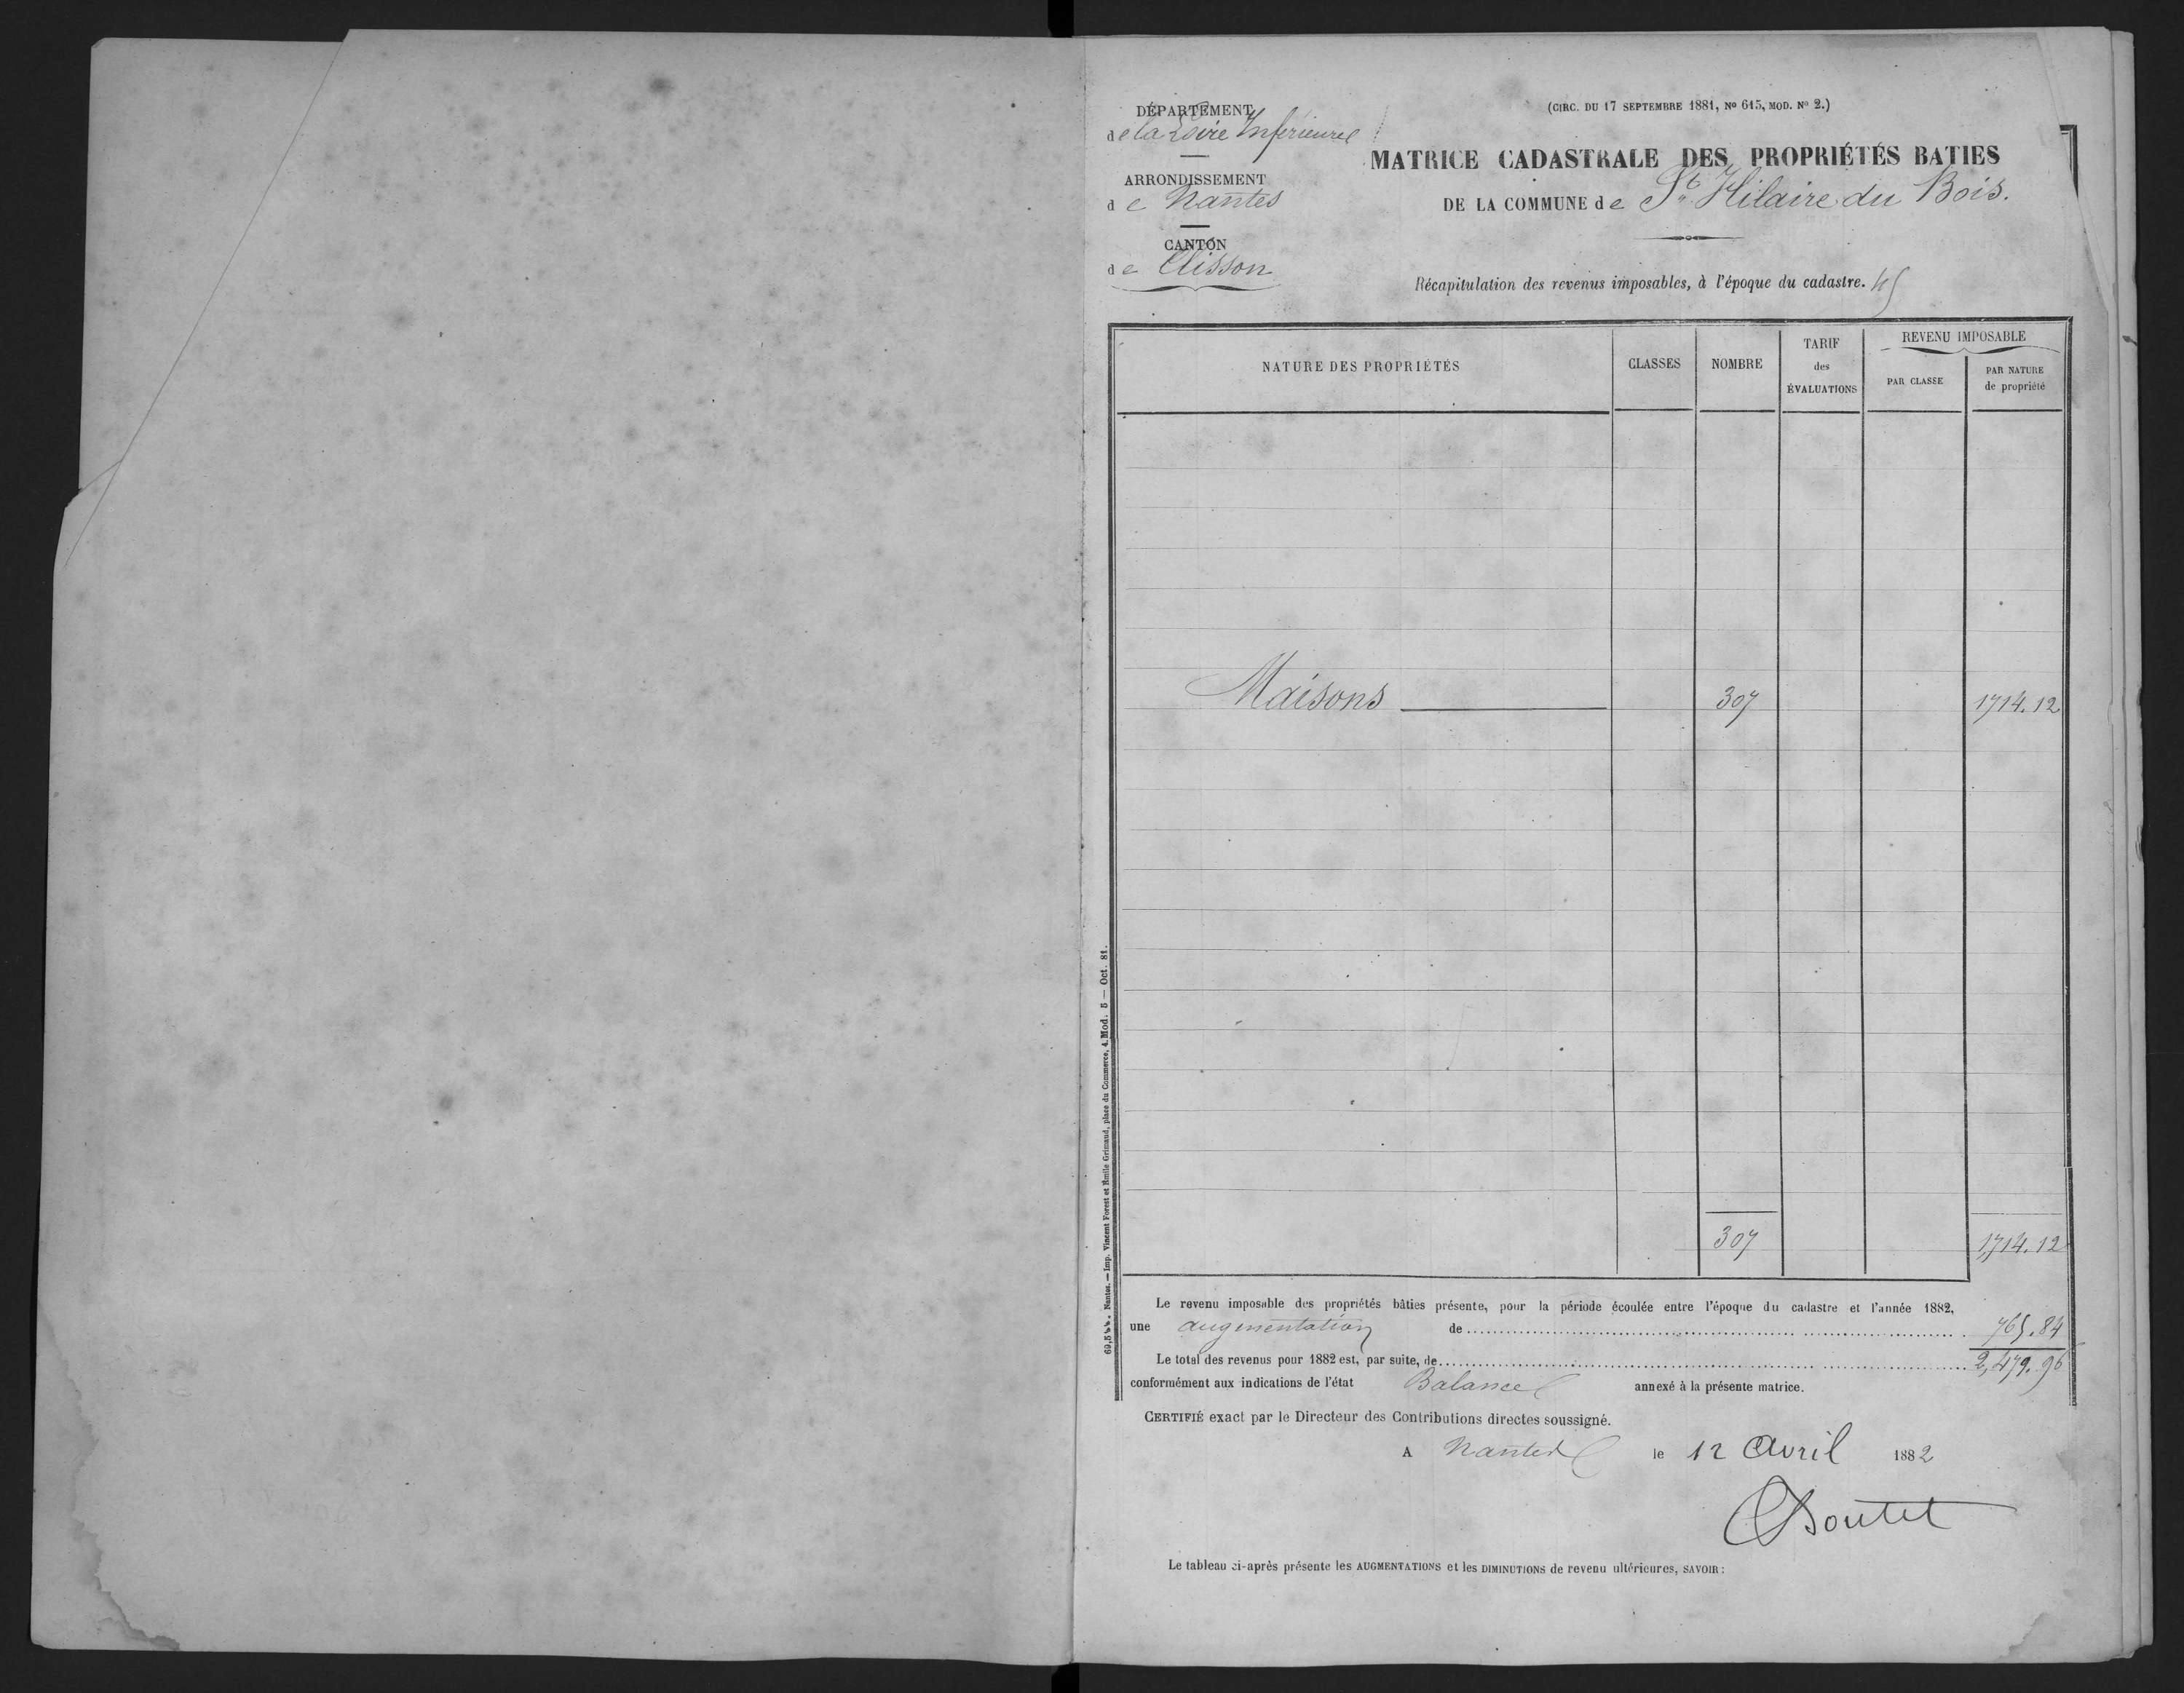 DÉPARTEMENT
de la Loire Inférieure
ARRONDISSEMENT
de Nantes
CANTON
de Clisson
(CIRC. DU 17 SEPTEMBRE 1881, No 615, MOD. No 2.)
MATRICE CADASTRALE DES PROPRIÉTÉS BATIES
DE LA COMMUNE de St Hilaire du Bois.
Récapitulation des revenus imposables, à l'époque du cadastre.
NATURE DES PROPRIÉTÉS CLASSES NOMBRE TARIF des ÉVALUATIONS REVENU IMPOSABLE
PAR CLASSE PAR NATURE de propriété
Maisons 307 1714.12
307 1,714.12
Le revenu imposable des propriétés bâties présente, pour la période écoulée entre l'époque du cadastre et l'année 1882,
une augmentation de 765.84
Le total des revenus pour 1882 est, par suite, de 2,479.96
conformément aux indications de l'état Balance annexé à la présente matrice.
CERTIFIÉ exact par le Directeur des Contributions directes soussigné.
A Nantes le 12 Avril 1882
Boutet
Le tableau ci-après présente les AUGMENTATIONS et les DIMINUTIONS de revenu ultérieures, SAVOIR :
Nantes. — Imp. Vincent Forest et Emile Grimaud, place du Commerce, 4. Mod. 5 — Oct. 81.